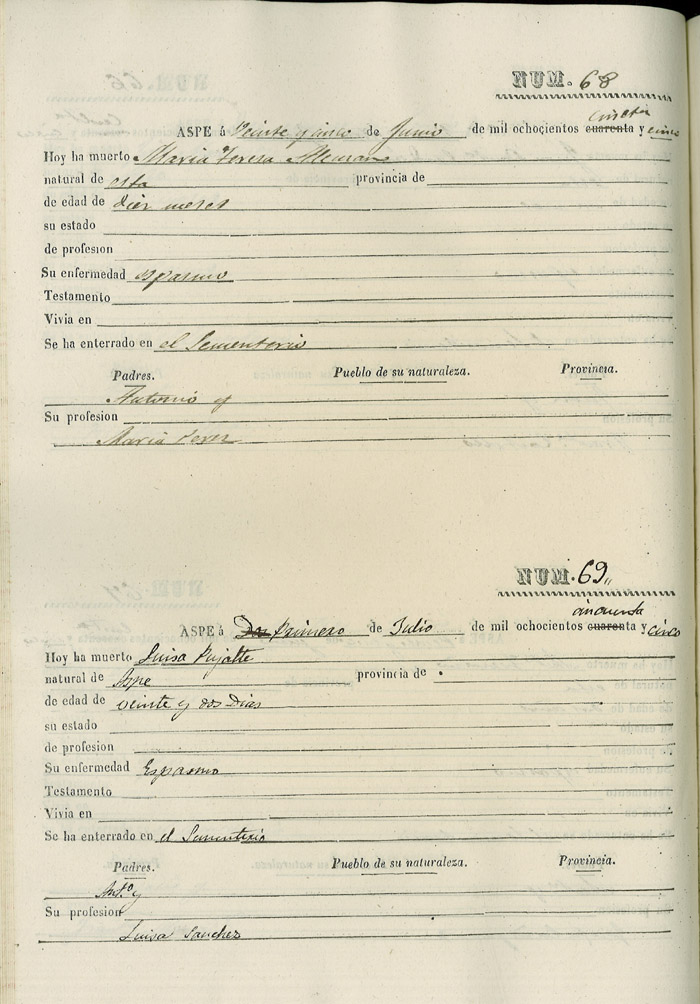 NUM. 68
cincta
ASPE á Veinte y cinco de Junio de mil ochocientos cuarenta y cinco
Hoy ha muerto Maria Teresa Aleman
natural de esta provincia de
de edad de diez meses
su estado
de profesion
Su enfermedad espasmo
Testamento
Vivia en
Se ha enterrado en el Sementerio
Padres. Pueblo de su naturaleza. Provincia.
Antonio y
Su profesion
Maria
NUM. 69
cincuenta
ASPE á Dos Primero de Julio de mil ochocientos cuarenta y cinco
Hoy ha muerto Luisa Pujalte
natural de Aspe provincia de
de edad de veinte y dos Dias
su estado
de profesion
Su enfermedad Espasmo
Testamento
Vivia en
Se ha enterrado en el Sementerio
Padres. Pueblo de su naturaleza. Provincia.
Ant.o y
Su profesion
Luisa Sanchez